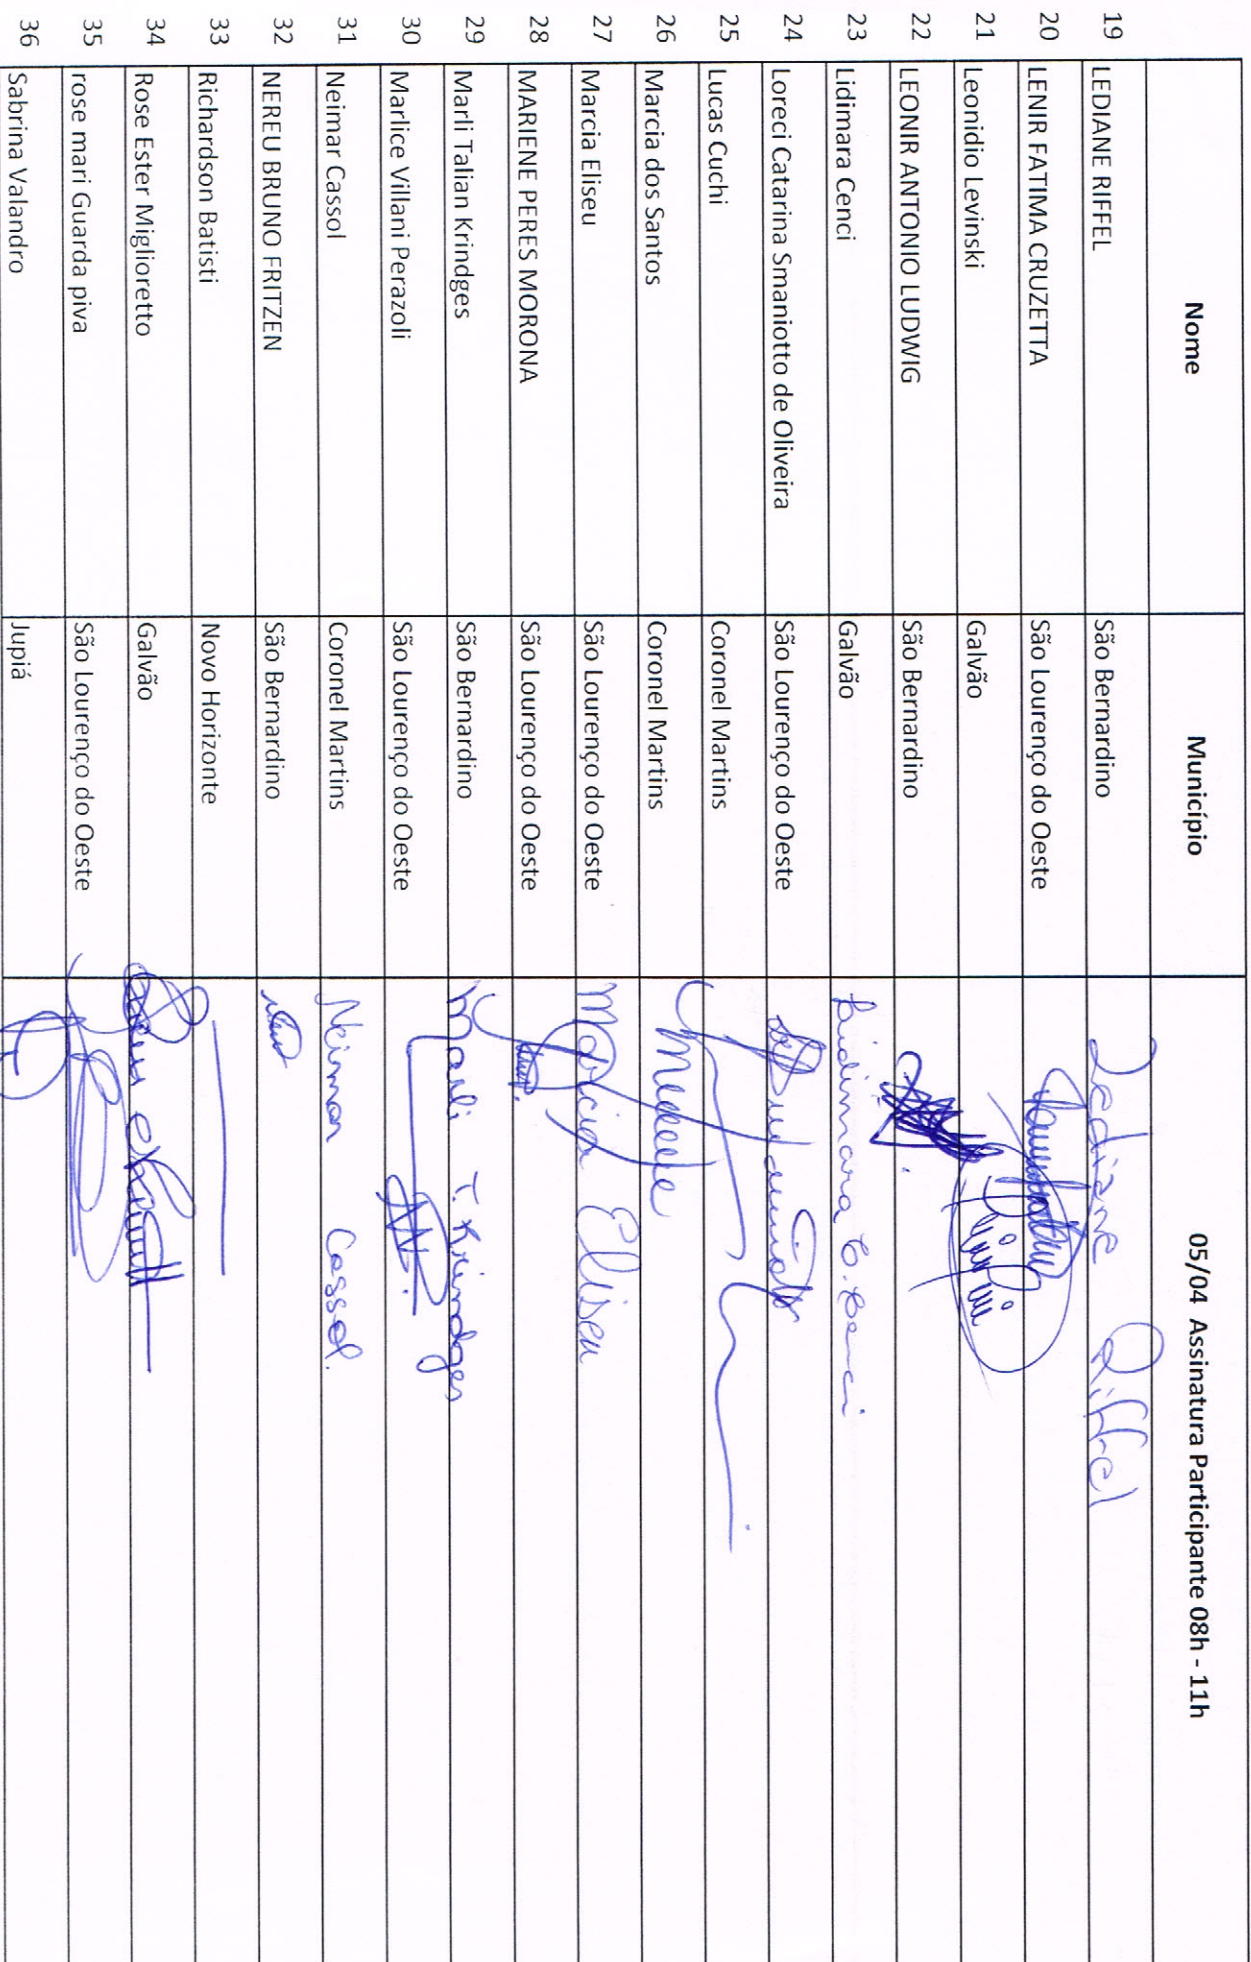 Nome Município 05/04 Assinatura Participante 08h - 11h
19 LEDIANE RIFFEL São Bernardino Lediane Riffel
20 LENIR FATIMA CRUZETTA São Lourenço do Oeste
21 Leonidio Levinski Galvão
22 LEONIR ANTONIO LUDWIG São Bernardino
23 Lidimara Cenci Galvão Lidimara C. Cenci
24 Loreci Catarina Smaniotto de Oliveira São Lourenço do Oeste
25 Lucas Cuchi Coronel Martins
26 Marcia dos Santos Coronel Martins
27 Marcia Eliseu São Lourenço do Oeste Marcia Eliseu
28 MARIENE PERES MORONA São Lourenço do Oeste
29 Marli Talian Krindges São Bernardino Marli T. Krindges
30 Marlice Villani Perazoli São Lourenço do Oeste
31 Neimar Cassol Coronel Martins Neimar Cassol.
32 NEREU BRUNO FRITZEN São Bernardino
33 Richardson Batisti Novo Horizonte
34 Rose Ester Miglioretto Galvão
35 rose mari Guarda piva São Lourenço do Oeste
36 Sabrina Valandro Jupiá